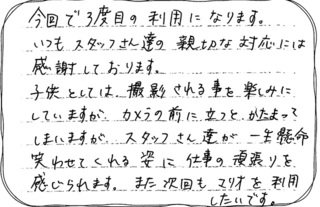 今回で3度目の利用になります。
いつもスタッフさん達の親切な対応には
感謝しております。
子供としては、撮影される事を楽しみに
していますが、カメラの前に立つとかたまって
しまいますが、スタッフさん達が一生懸命
笑わせてくれる姿に仕事の頑張りを
感じられます。また次回もマリオを利用
したいです。